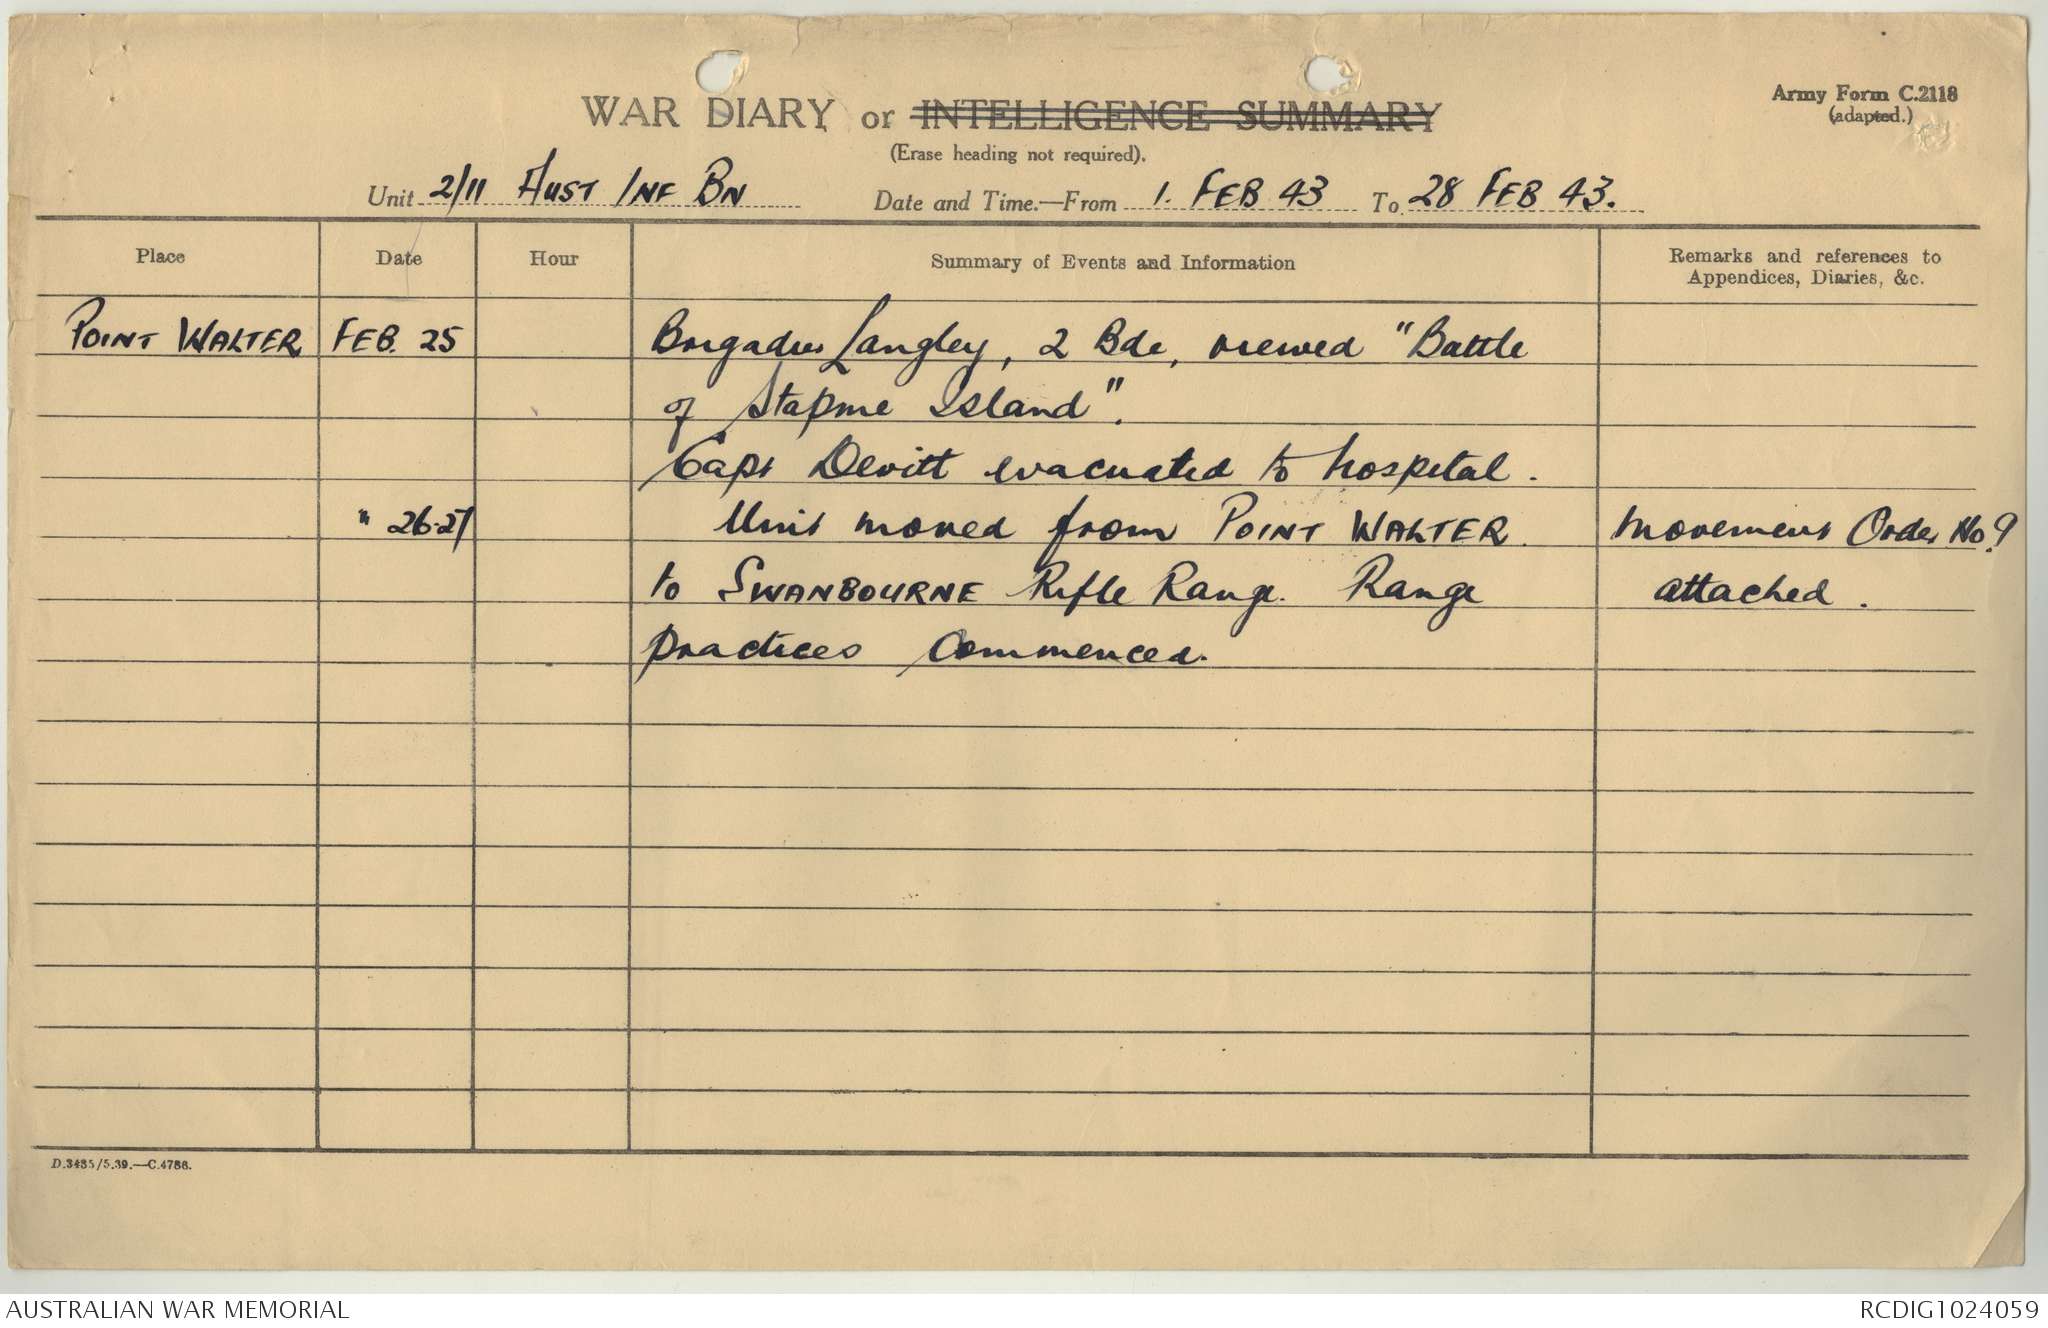 Army Form C.2118
(adapted.)
WAR DIARY or INTELLIGENCE SUMMARY
(Erase heading not required).
Unit 2/11 AUST INF BN Date and Time.—From 1. FEB 43 To 28 FEB 43.
Place Date Hour Summary of Events and Information Remarks and references to
Appendices, Diaries, &c.
POINT WALTER FEB. 25 Brigadier Langley, 2 Bde, viewed "Battle
of Stapme Island".
Capt Devitt evacuated to hospital.
" 26-27 Unit moved from POINT WALTER Movement Order No. 9
to SWANBOURNE Rifle Range. Range attached.
practices commenced.
D.3485/5.39.—C.4786.
AUSTRALIAN WAR MEMORIAL RCDIG1024059